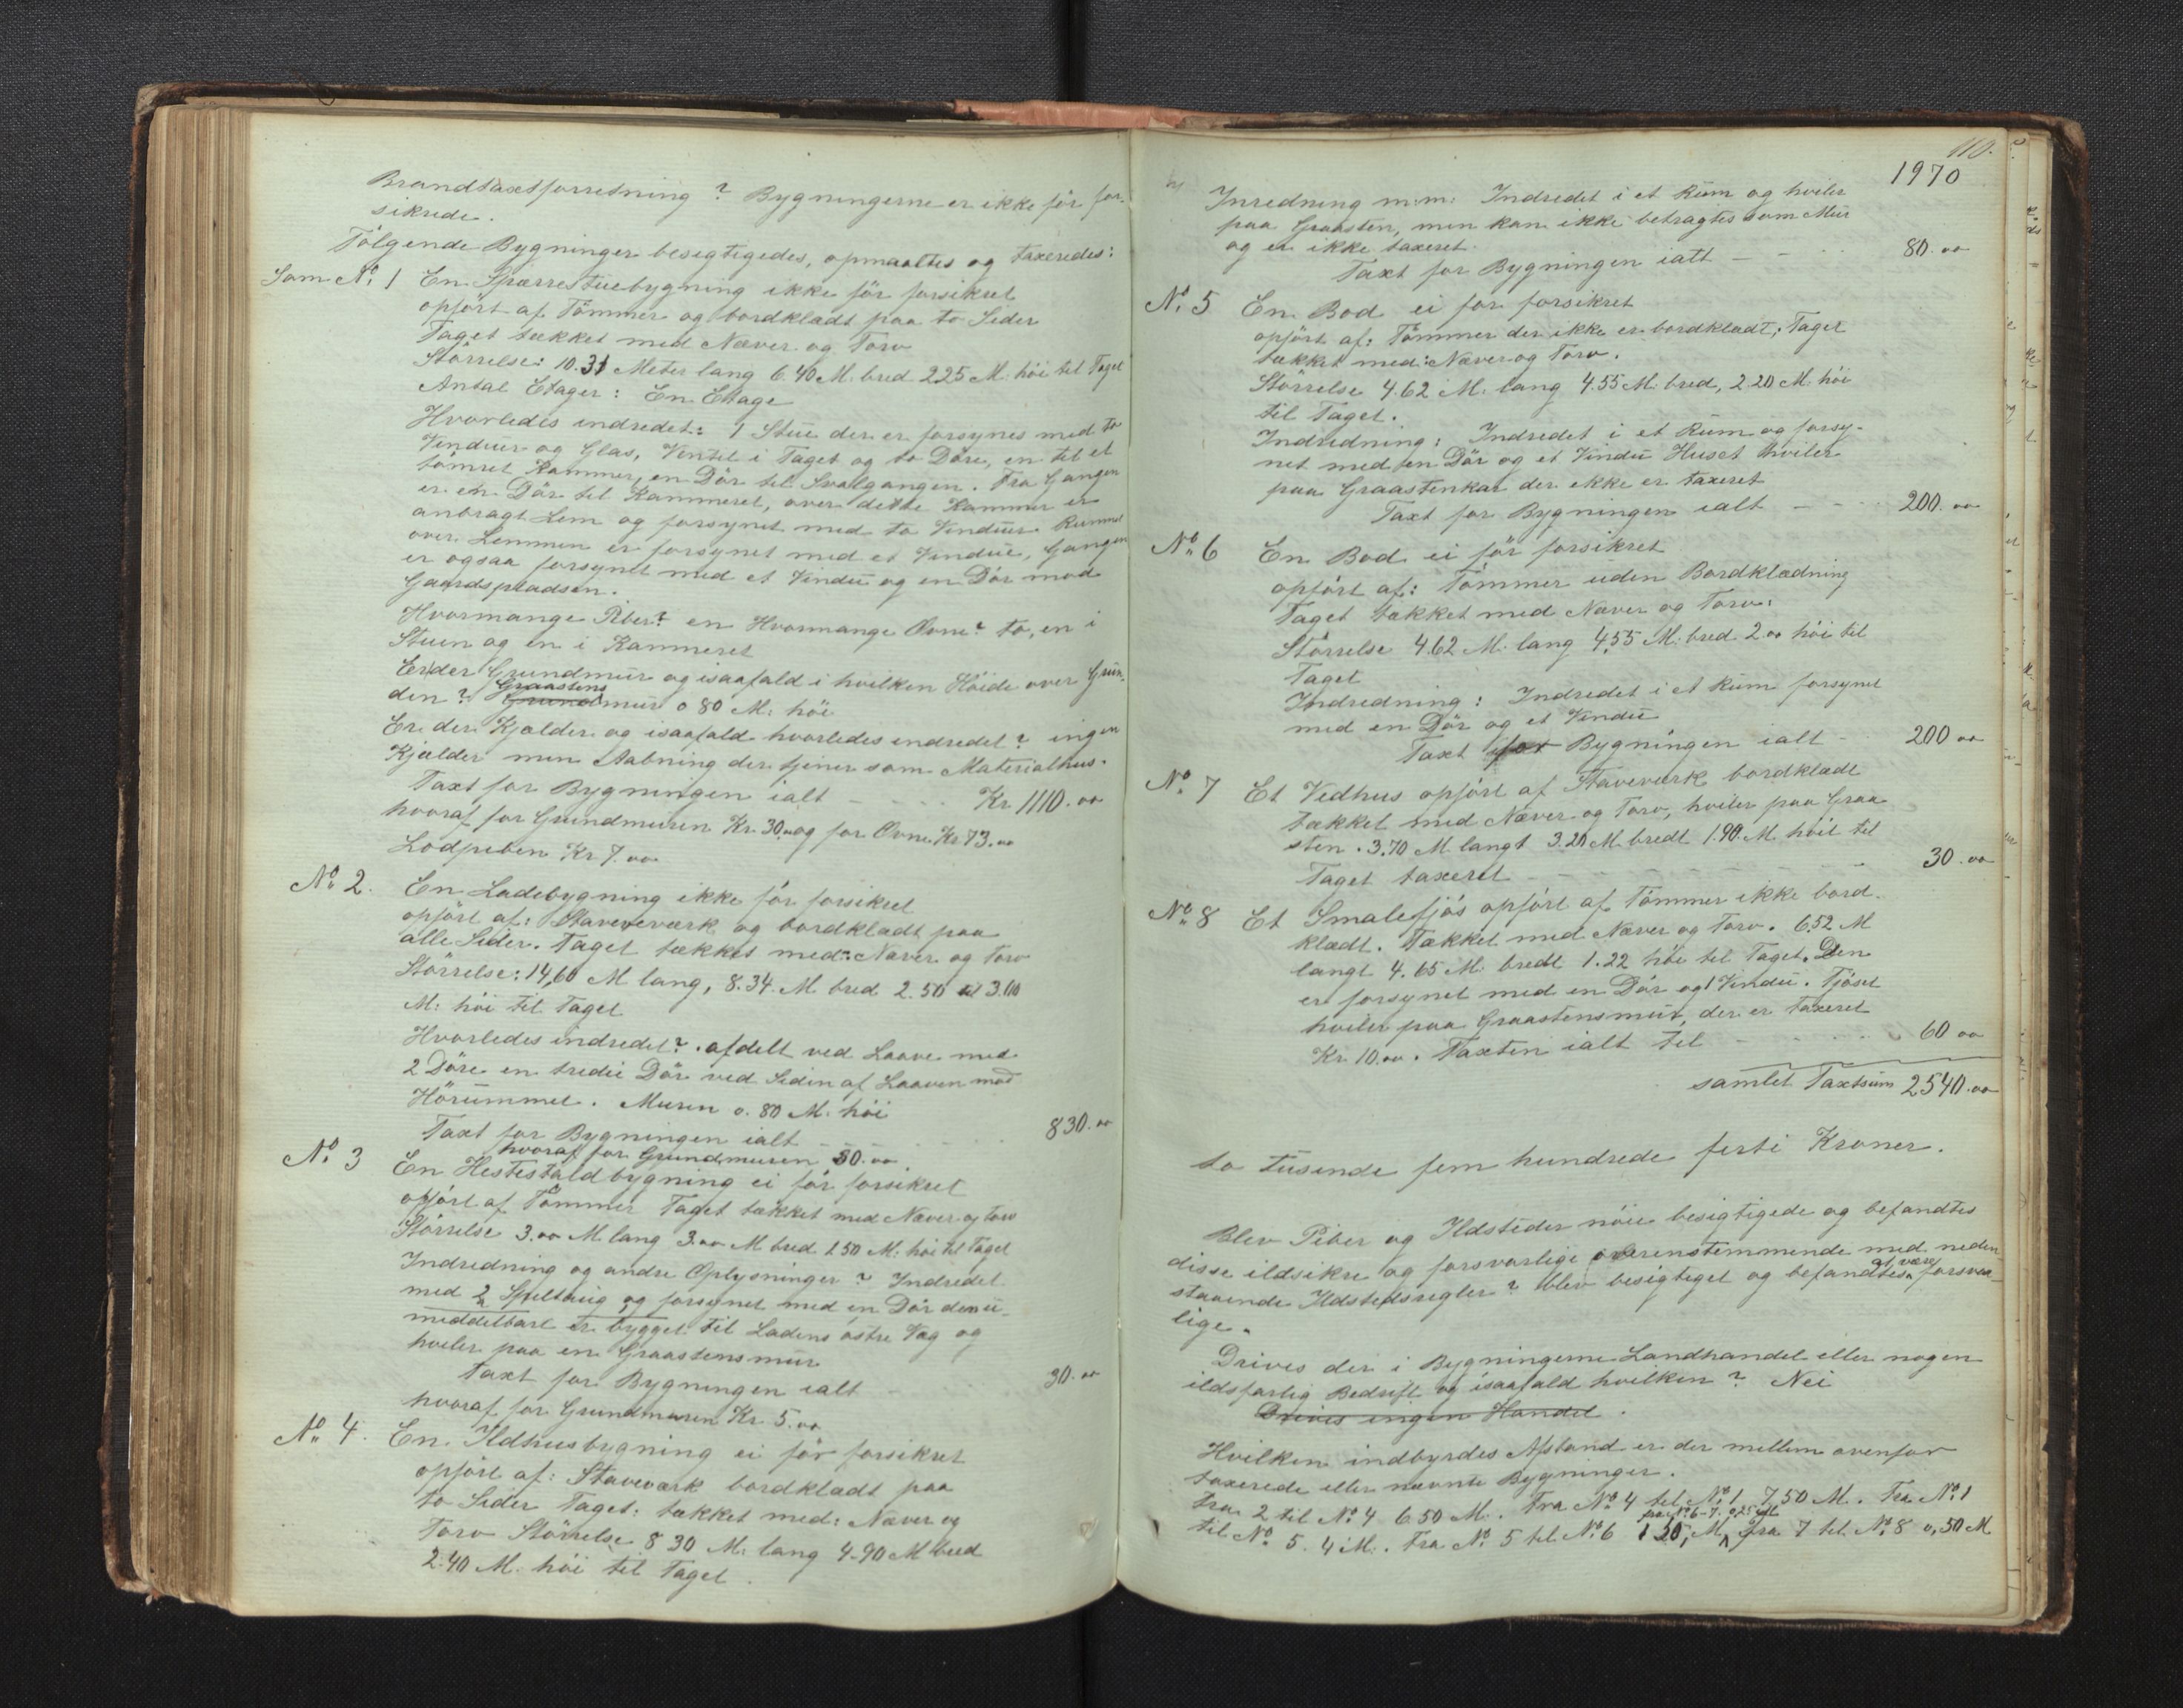 Brandtaxtforretning? Bygningerne er ikke för for-
sikrede.
Fölgende Bygninger besigtigedes, opmaaltes og taxeredes:
Som No. 1 En Spærrestuebygning ikke för forsikret
opfört af Tömmer og bordklædt paa to Sider
Taget tækket med Næver og Torv
Störrelse: 10.31 Meter lang 6.40 M. bred 2.25 M. höi til Taget
Antal Etager: En Etage
Hvorledes indredet: 1 Stue der er forsynes med to
Vinduer og Glas, Ventil i Taget og to Döre, en til et
tömret Kammer, en Dör til Svalgangen. Fra Gangen
er en Dör til Kammeret, over dette Kammer er
anbragt Lem og forsynet med to Vinduer Rummet
over Lemmen er forsynet med et Vindue, Gangen
er ogsaa forsynet med et Vindu og en Dör mod
Gaardspladsen.
Hvormange Piber? en Hvormange Ovne? to, en i
Stuen og en i Kammeret
Er der Grundmur og isaafald i hvilken Höide over Grun-
den? Graastens mur 0 80 M: höi
Er der Kjælder og isaafald hvorledes indredet? ingen
Kjælder men Aabning der tjener som Materialhus.
Taxt for Bygningen ialt - - - - Kr 1110.00
hvoraf for Grundmuren Kr. 30.00 og for Ovne Kr 73.00
Lodpiben Kr 7.00
No. 2. En Ladebygning ikke för forsikret
opfört af: Staveværk og bordklædt paa
alle Sider. Taget tækket med: Næver og Torv
Störrelse: 14,60 M lang, 8.34. M bred 2.50 til 3.00
M: höi til Taget
Hvorledes indredet? afdelt ved Laave med
2 Döre en tredie Dör ved Siden af Laaven mod
Hörummet. Muren 0.80 M. höi
Taxt for Bygningen ialt - - - - 830.00
hvoraf for Grundmuren 30.00
No. 3 En Hestestaldbygning ei för forsikret
opfört af Tömmer Taget tækket med Næver og torv
Störrelse 3.00 M lang 3.00 M bred 1.50 M: höi til Taget
Indredning og andre Oplysninger? Indredet
med 2 og forsynet med en Dör den u-
middelbart er bygget til Ladens östre Væg og
hviler paa en Graastensmur
Taxt for Bygningen ialt - 30.00
hvoraf for Grundmuren Kr. 5.00
No. 4. En Ildhusbygning ei för forsikret
opfört af: Staveværk bordklædt paa
to Sider Taget: tækket med: Næver og
Torv Störrelse 8 30 M: lang 4.90 M bred
2.40 M. höi til Taget.
110.
1970
Inredning m:m: Indredet i et Rum og hviler
paa Graasten, men kan ikke betragtes som Mur
og er ikke taxeret.
Taxt for Bygningen ialt - - - 80.00
No. 5 En Bod ei for forsikret
opfört af: Tömmer der ikke er bordklædt, Taget
tækket med: Næver og Torv.
Störrelse 4.62 M. lang 4.55 M. bred, 2.20 M. höi
til Taget.
Indredning: Indredet i et Rum og forsy-
net med en Dör og et Vindu Huset hviler
paa Graastenkar der ikke er taxeret
Taxt for Bygningen ialt - - - 200.00
No. 6 En Bod ei för forsikret
opfört af: Tömmer uden Bordklædning
Taget tækket med Næver og Torv.
Störrelse 4.62 M. lang 4,55 M. bred 2.00 höi til
Taget
Indredning: Indredet i et Rum forsynet
med en Dör og et Vindu
Taxt for Bygningen ialt - 200 00
No. 7 Et Vedhus opfört af Staveværk bordklædt
tækket med Næver og Torv, hviler paa Graa
sten. 3.70 M. langt 3.20 M. bredt 1.90. M. höit til
Taget taxeret - - - - 30.00
No. 8 Et Smalefjös opfört af Tömmer ikke bord-
klædt. Tækket med Næver og Torv. 6.52 M
langt 4.65 M. bredt 1.22 höi til Taget. Den
er forsynet med en Dör og 1 Vindu. Fjöset
hviler paa Graastensmur, der er taxeret
Kr. 10.00. Taxten ialt til - - - 60 00
samlet Taxtsum 2540.00
to tusende fem hundrede firti Kroner.
Blev Piber og Ildsteder nöie besigtigede og befandtes
disse ildsikre og forsvarlige overenstemmende med neden
staaende Ildstedsregler? blev besigtiget og befandtes at være forsvar-
lige.
Drives der i Bygningerne Landhandel eller nogen
ildsfarlig Bedrift og isaafald hvilken? Nei
Drives ingen Handel.
Hvilken indbyrdes Afstand er der mellem ovenfor
taxerede eller nævnte Bygninger.
Fra 2 til No. 4 6.50 M. Fra No. 4 til No. 1 7,50 M. Fra No. 1
til No. 5. 4 M. Fra No. 5 til No. 6 1 20, M, fra No 6-7. 0,25 M. fra 7 til No. 8 0,50 M